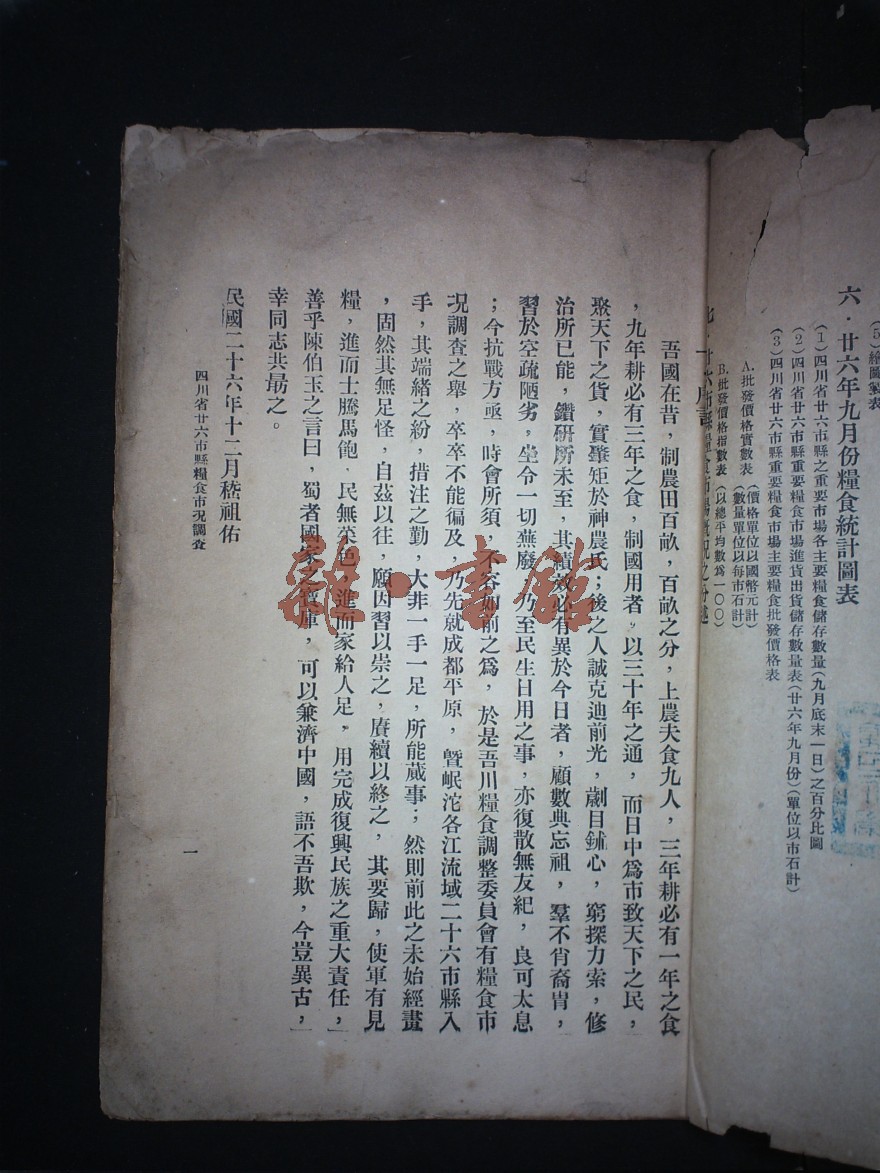 (5)繪圖製表
六·廿六年九月份糧食統計圖表
(1)四川省廿六市縣之重要市場各主要糧食儲存數量(九月底末一日)之百分比圖
(2)四川省廿六市縣重要糧食市場進貨出貨儲存數量表(廿六年九月份)(單位以市石計)
(3)四川省廿六市縣重要糧食市場主要糧食批發價格表
A.批發價格實數表(價格單位以國幣元計)
(數量單位以每市石計)
B.批發價格指數表(以總平均數爲一〇〇)
七·廿六市縣糧食市場概況之分述
吾國在昔,制農田百畝,百畝之分,上農夫食九人,三年耕必有一年之食
,九年耕必有三年之食,制國用者,以三十年之通,而日中爲市致天下之民,
聚天下之貨,實肇矩於神農氏;後之人誠克迪前光,劌目鉥心,窮探力索,修
治所已能,鑽研所未至,其績效必有異於今日者,顧數典忘祖,羣不肖裔胄,
習於空疏陋劣,坐令一切蕪廢,乃至民生日用之事,亦復散無友紀,良可太息
;今抗戰方亟,時會所須,不容如前之爲,於是吾川糧食調整委員會有糧食市
況調查之舉,卒卒不能徧及,乃先就成都平原,曁岷沱各江流域二十六市縣入
手,其端緒之紛,措注之勤,大非一手一足,所能蕆事;然則前此之未始經畫
,固然其無足怪,自茲以往,願因習以崇之,賡續以終之,其要歸,使軍有見
糧,進而士騰馬飽,民無菜色,進而家給人足,用完成復興民族之重大責任,
善乎陳伯玉之言曰,蜀者國家之寶庫,可以兼濟中國,語不吾欺,今豈異古,
幸同志共勗之。
民國二十六年十二月嵇祖佑
四川省廿六市縣糧食市況調查
一
雜·書館